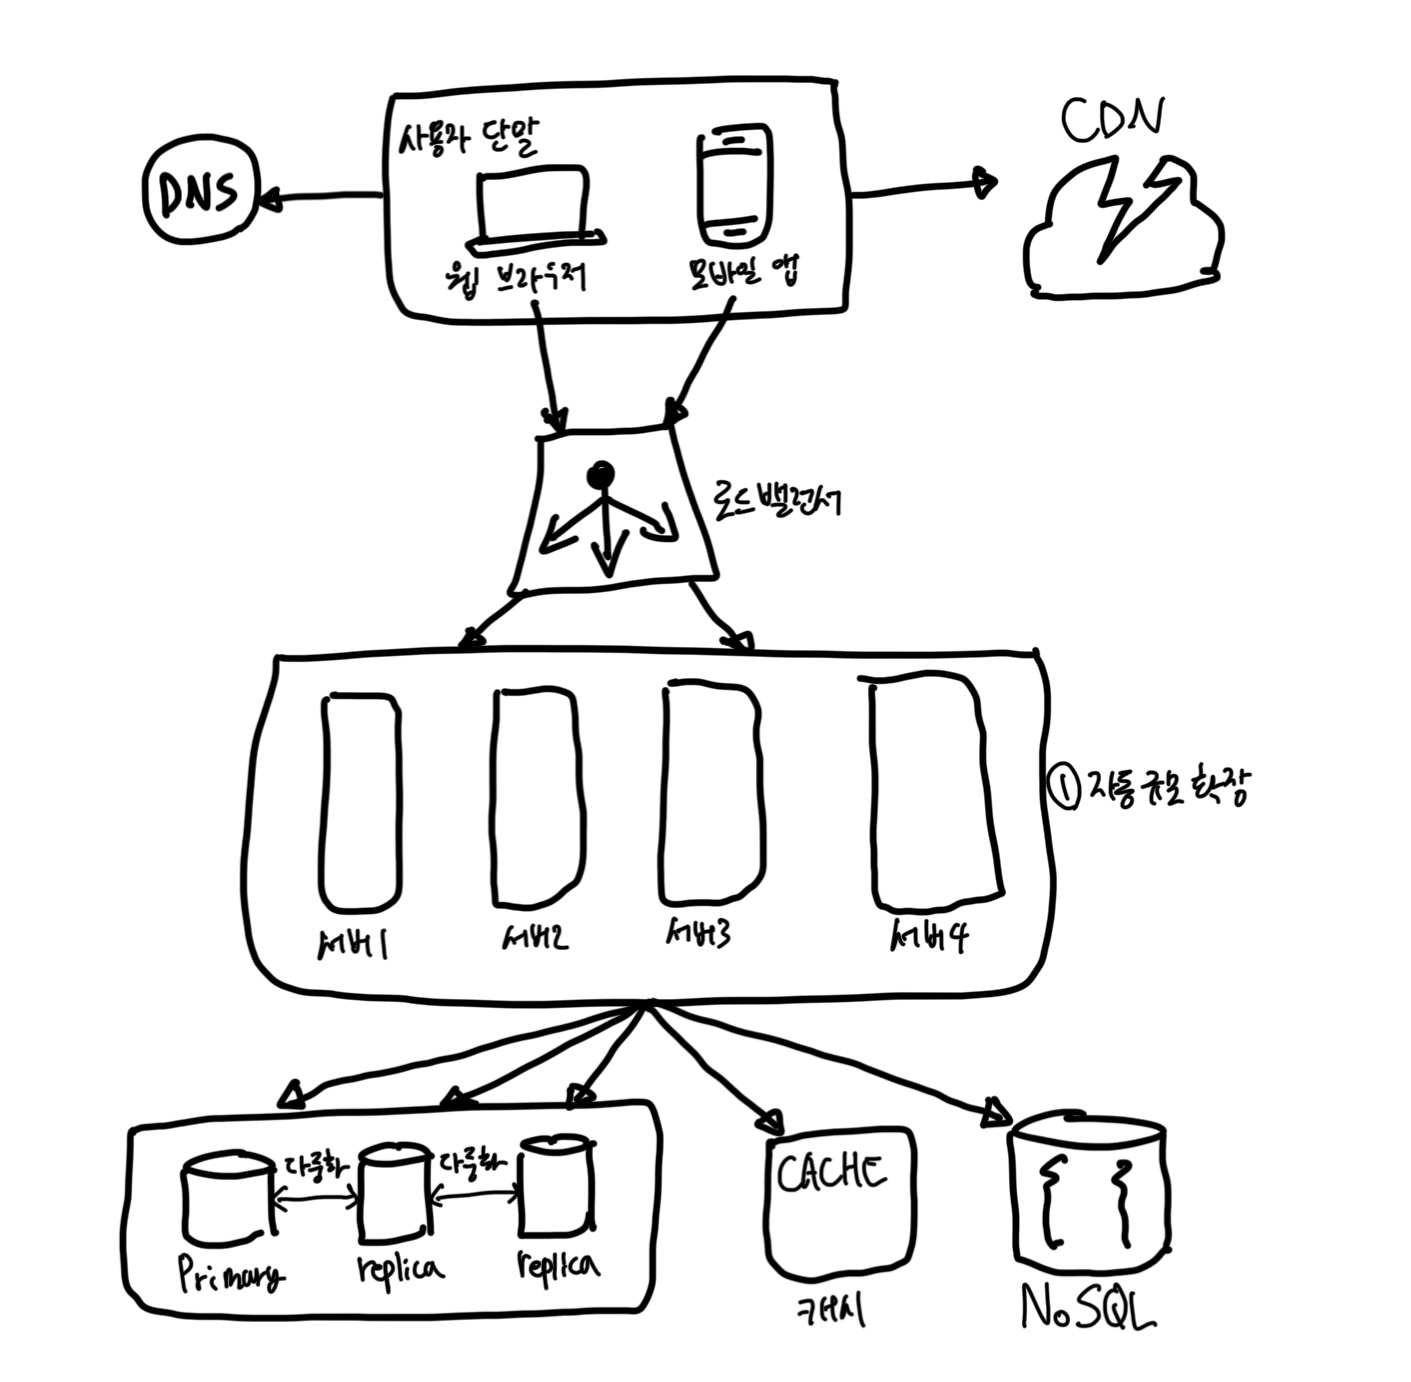 CDN
사용자 단말
DNS
웹 브라우저
모바일 앱
로드밸런서
① 자동 규모 확장
서버1
서버2
서버3
서버4
다중화
다중화
CACHE
Primary
replica
replica
캐시
NoSQL